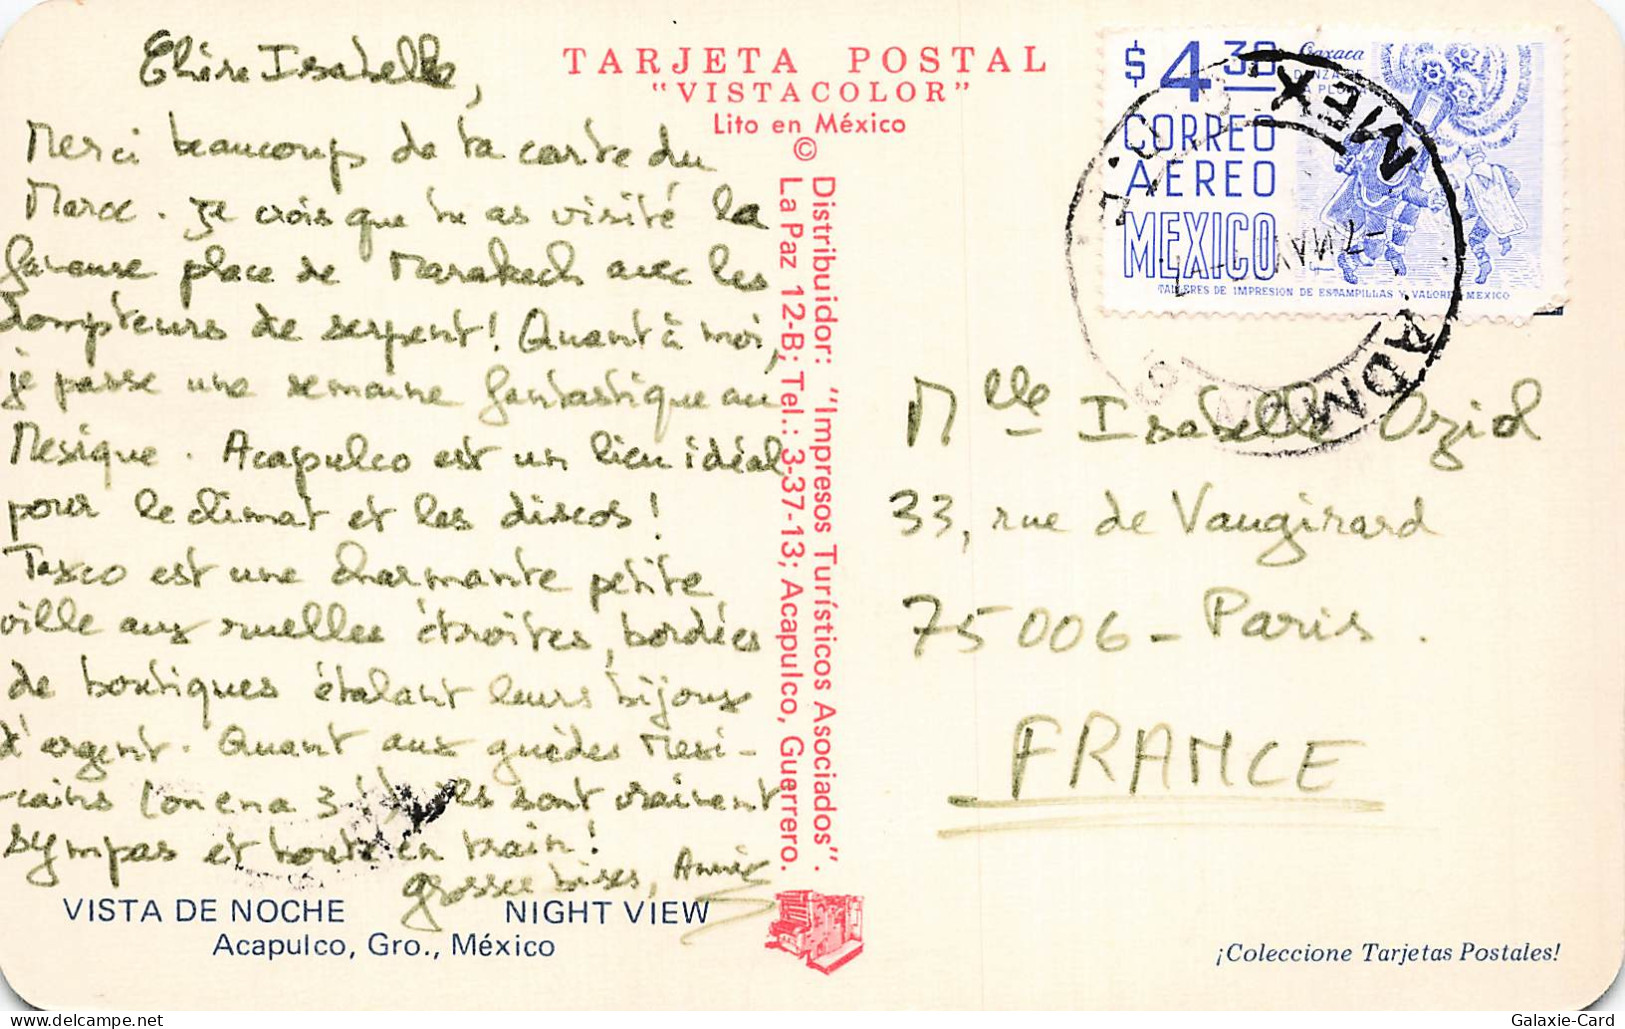 Chère Isabelle,
Merci beaucoup de ta carte du
Maroc. Je crois que tu as visité la
fameuse place de Marakech avec les
dompteurs de serpent! Quant à moi,
je passe une semaine fantastique au
Mexique. Acapulco est un lieu idéal
pour le climat et les discos!
Taxco est une charmante petite
ville aux ruelles étroites, bordées
de boutiques étalant leurs bijoux
d'argent. Quant aux guides Mexi-
cains (on en a 3 ils sont vraiment
sympas et toute en train!
grosses bises, Annie
VISTA DE NOCHE NIGHT VIEW
Acapulco, Gro., México
TARJETA POSTAL
"VISTACOLOR"
Lito en México
© Distribuidor: "Impresos Turísticos Asociados".
La Paz 12-B; Tel.: 3-37-13; Acapulco, Guerrero.
$4.30 Oaxaca
DANZA DE
PLU
CORREO
AEREO
MEXICO
TALLERES DE IMPRESION DE ESTAMPILLAS Y VALORES MEXICO
MEX
-7 MAY
ADMON
Mlle Isabelle Oziol
33, rue de Vaugirard
75006 - Paris.
FRANCE
¡Coleccione Tarjetas Postales!
Galaxie-Card